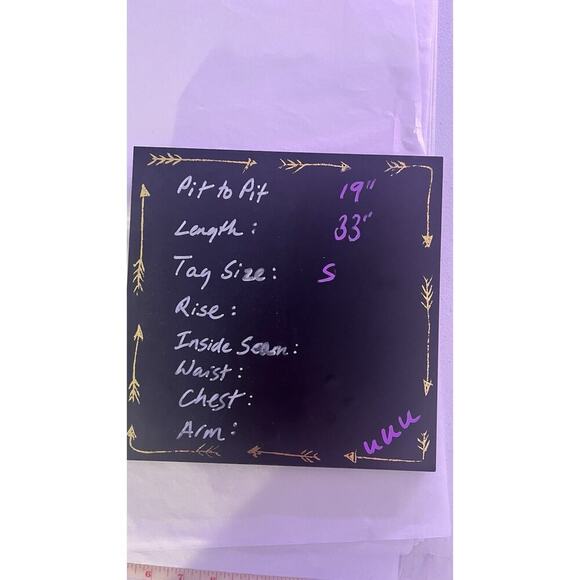 Pit to Pit 19"
Length: 33"
Tag Size: S
Rise:
Inside Seam:
Waist:
Chest:
Arm:
uuu
6 7